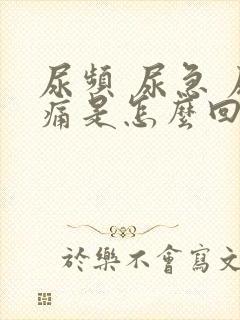 尿頻 尿急
痛是怎麼回
於樂不會寫文